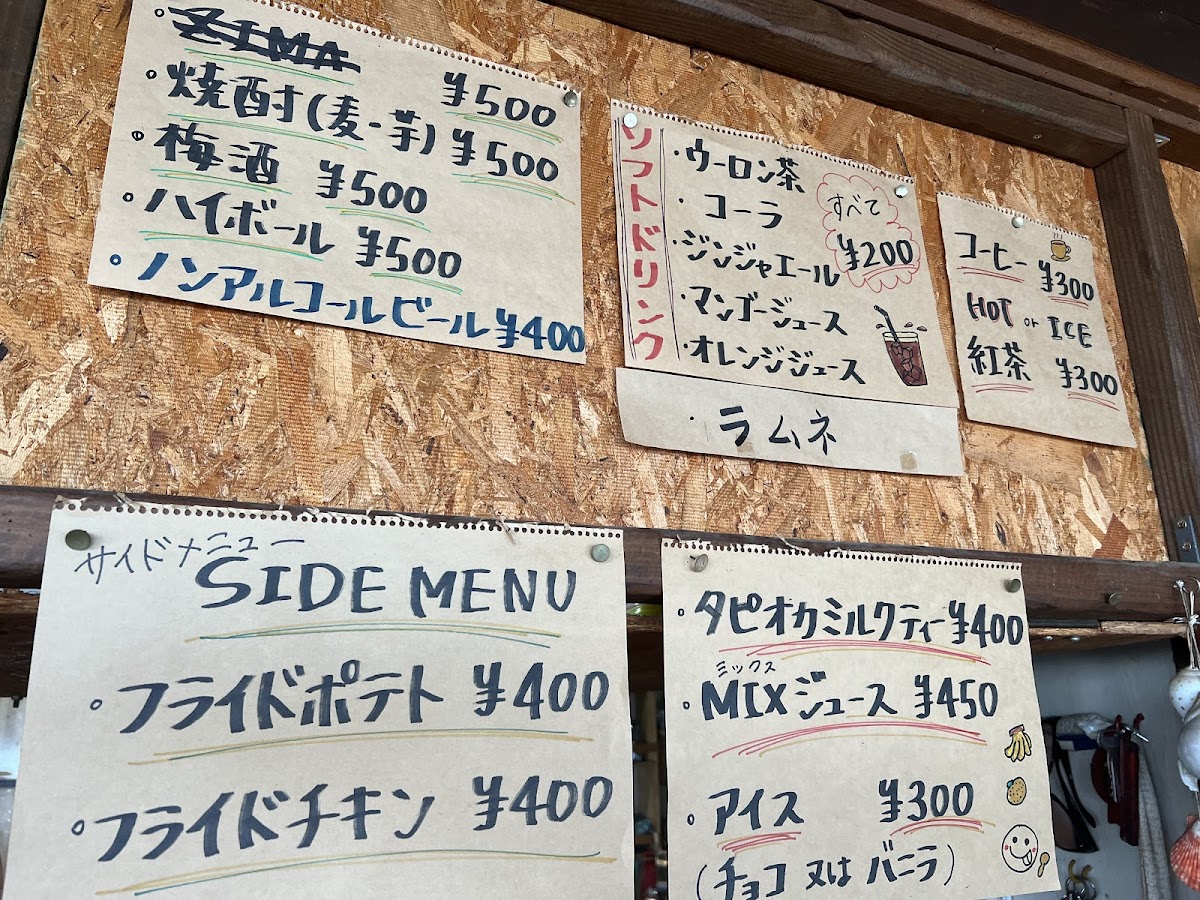 ZIMA ¥500
焼酎(麦・芋) ¥500
梅酒 ¥500
ハイボール ¥500
ノンアルコールビール ¥400
ソフトドリンク
・ウーロン茶
・コーラ
・ジンジャエール
・マンゴージュース
・オレンジジュース
すべて
¥200
・ラムネ
コーヒー ¥300
HOT or ICE
紅茶 ¥300
サイドメニュー
SIDE MENU
フライドポテト ¥400
フライドチキン ¥400
・タピオカミルクティー ¥400
ミックス
・MIXジュース ¥450
アイス ¥300
(チョコ又はバニラ)